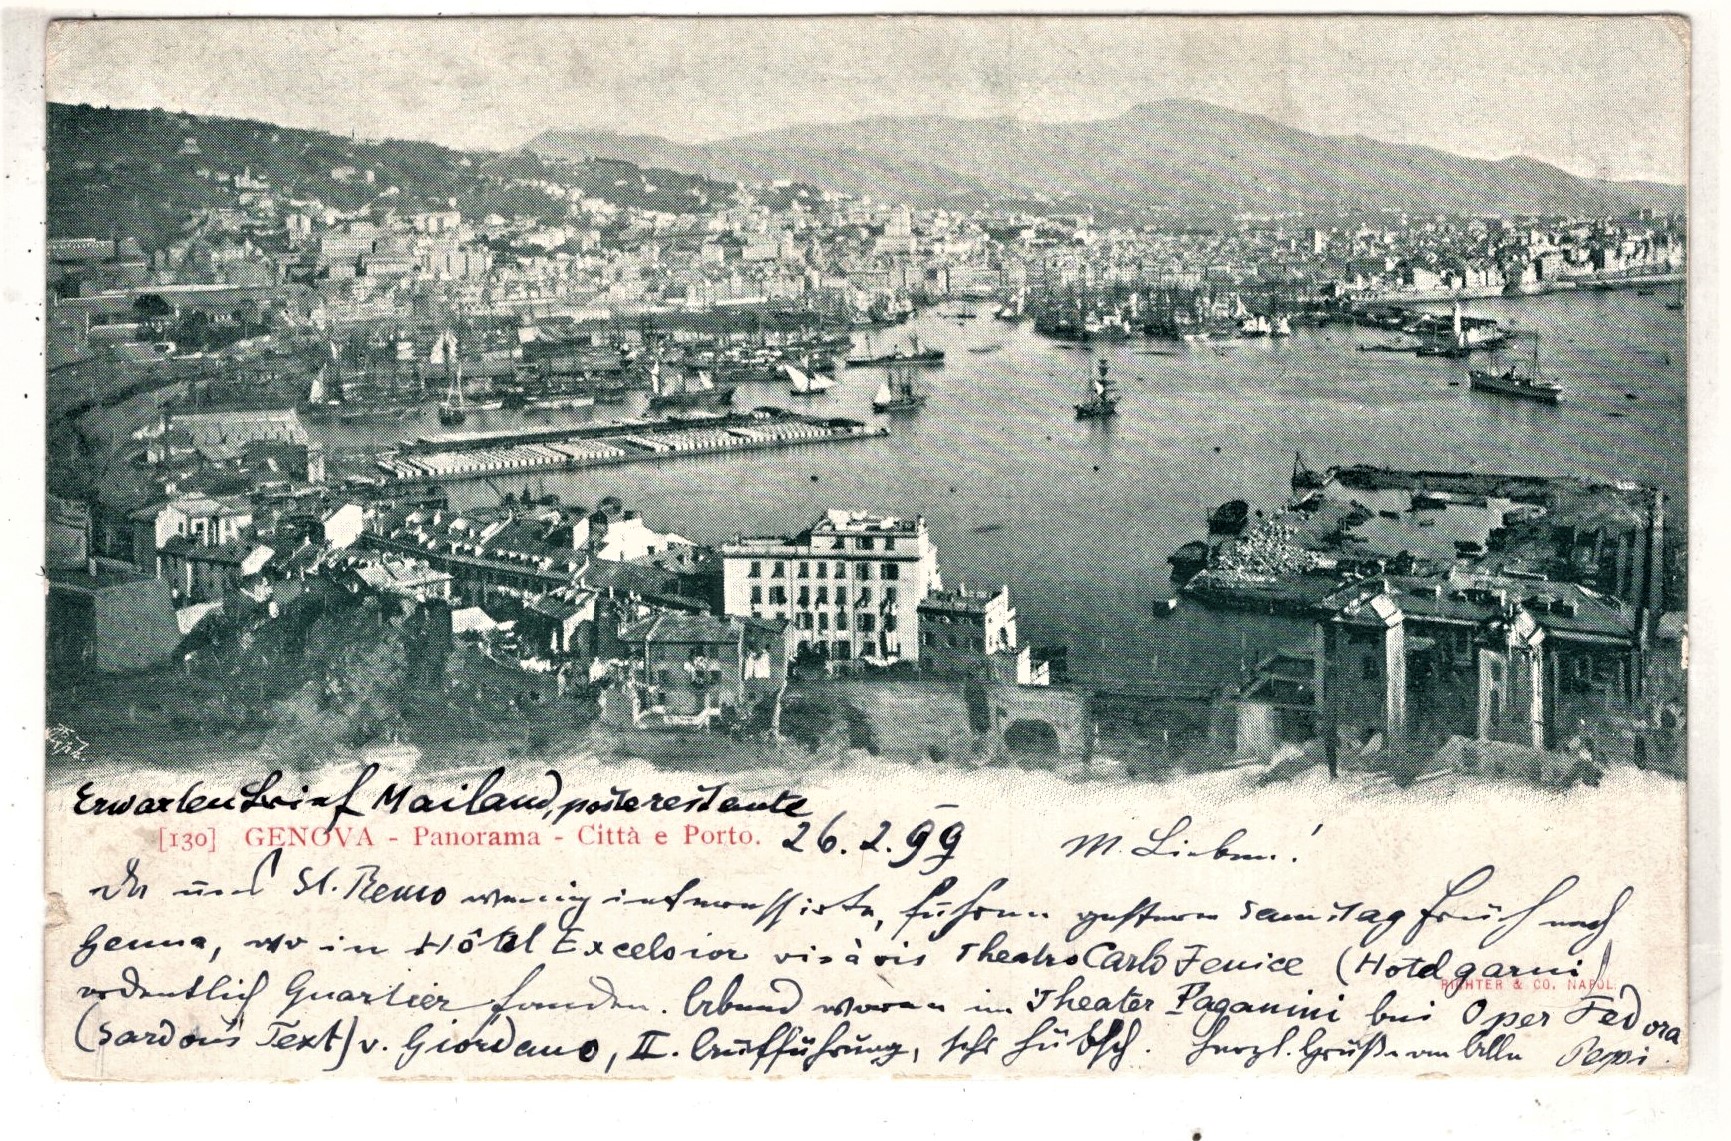 Erwarten Brief Mailand, poste restante
[130] GENOVA - Panorama - Città e Porto.
26.2.99
M. Lieben!
Da uns St. Remo wenig interessirte, fuhren gestern Samstag früh nach
Genua, wo in Hôtel Excelsior vis à vis Theatro Carlo Fenice (Hotel garni)
RICHTER & CO. NAPOL.
ordentlich Quartier fanden. Abend waren im Theater Paganini bei Oper Fedora
(Sardou's Text) v. Giordano, II. Aufführung, sehr hübsch. Herzl. Grüße an Alle Peppi